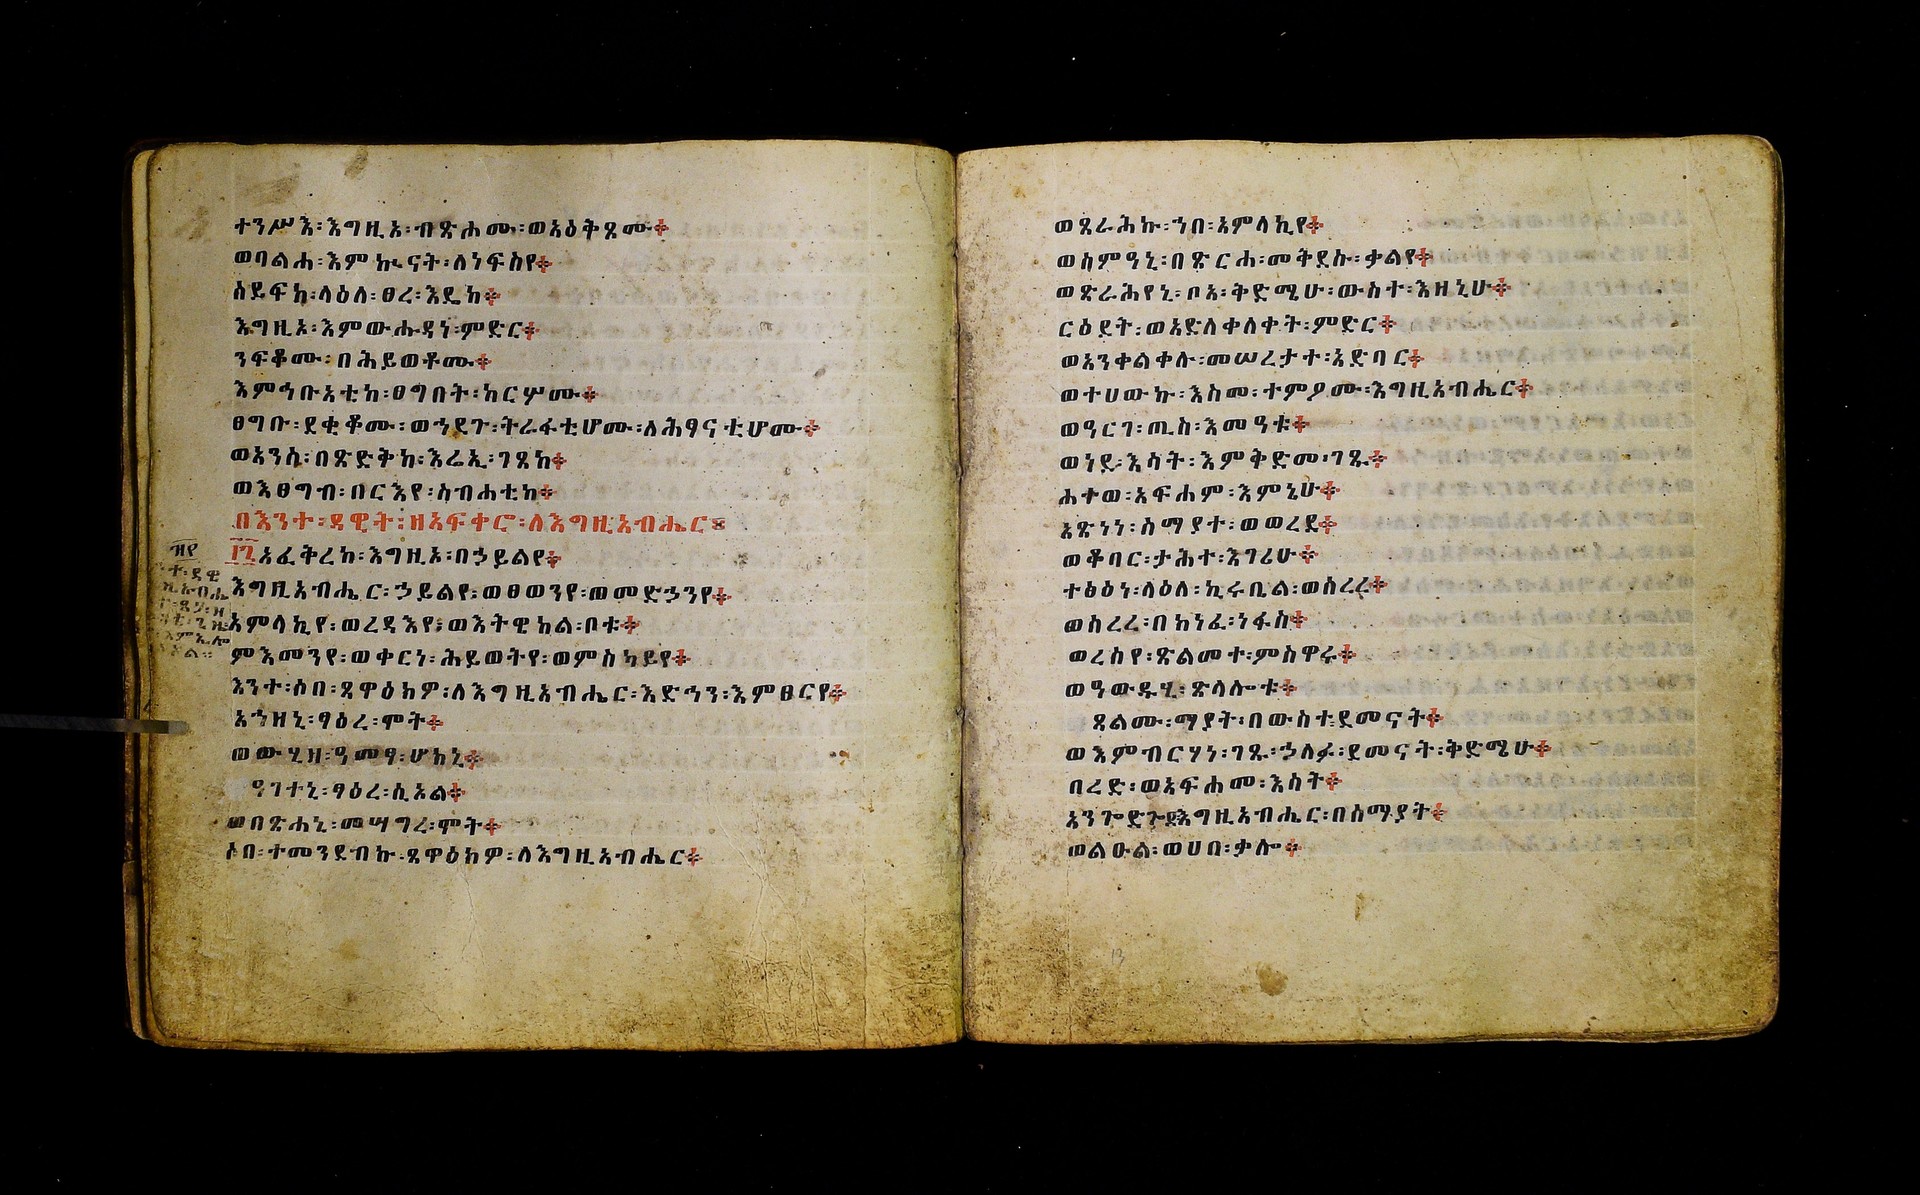 ተንሥእ፡እግዚአ፡ብጽሐሙ፡ወአዕቅጾሙ፨
ወባልሐ፡እምኲናት፡ለነፍስየ፨
ሰይፍከ፡ላዕለ፡ፀረ፡እዴከ፨
እግዚአ፡እምውሑዳነ፡ምድር፨
ንፍቆሙ፡በሕይወቶሙ፨
እምኅቡአቲከ፡ፀግበት፡ከርሦሙ፨
ፀግቡ፡ደቂቆሙ፡ወኀደጉ፡ትራፋቲሆሙ፡ለሕፃናቲሆሙ፨
ወአንሰ፡በጽድቅከ፡እሬኢ፡ገጸከ፨
ወእፀግብ፡በርእየ፡ስብሐቲከ፨
በእንተ፡ዳዊት፡ዘአፍቀሮ፡ለእግዚአብሔር፨
፲፯አፈቅረከ፡እግዚአ፡በኃይልየ፨
እግዚአብሔር፡ኃይልየ፡ወፀወንየ፡ወመድኃንየ፨
አምላኪየ፡ወረዳእየ፡ወእትዊከል፡ቦቱ፨
ምእመንየ፡ወቀርነ፡ሕይወትየ፡ወምስካይየ፨
እንተ፡ሰበ፡ጸዋዕክዎ፡ለእግዚአብሔር፡እድኅን፡እምፀርየ፨
አኀዘኒ፡ፃዕረ፡ሞት፨
ወውሂዘ፡ዓመፃ፡ሆከኒ፨
ዓገተኒ፡ፃዕረ፡ሲኦል፨
ወበጽሐኒ፡መሣግረ፡ሞት፨
ሶበ፡ተመንደብኩ፡ጸዋዕክዎ፡ለእግዚአብሔር፨
ወጸራሕኩ፡ኀበ፡አምላኪየ፨
ወሰምዓኒ፡በጽርሐ፡መቅደሱ፡ቃልየ፨
ወጽራሕየኒ፡ቦአ፡ቅድሜሁ፡ውስተ፡እዘኒሁ፨
ርዕደት፡ወአድለቀለቀት፡ምድር፨
ወአንቀልቀሉ፡መሠረታተ፡አድባር፨
ወተሀውኩ፡እስመ፡ተምዖሙ፡እግዚአብሔር፨
ወዓርገ፡ጢስ፡እመዓቱ፨
ወነደ፡እሳት፡እምቅድመ፡ገጹ፨
ሐተወ፡አፍሐም፡እምኔሁ፨
አጽነነ፡ሰማያተ፡ወወረደ፨
ወቆባር፡ታሕተ፡እገሪሁ፨
ተፅዕነ፡ላዕለ፡ኪሩቤል፡ወሰረረ፨
ወሰረረ፡በክነፈ፡ነፋስ፨
ወረሰየ፡ጽልመተ፡ምስዋሩ፨
ወዓውዱሂ፡ጽላሎቱ፨
ጸልሙ፡ማያት፡በውስተ፡ደመናት፨
ወእምብርሃነ፡ገጹ፡ኃለፉ፡ደመናት፡ቅድሜሁ፨
በረድ፡ወአፍሐመ፡እሳት፨
አንጐድጐደእግዚአብሔር፡በሰማያት፨
ወልዑል፡ወሀበ፡ቃሎ፨
13